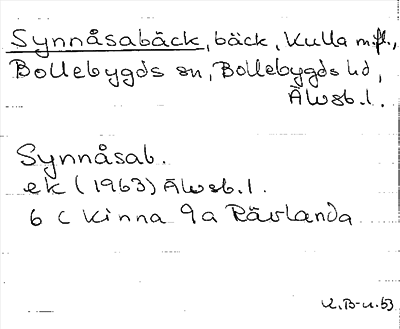 Synnåsabäck, bäck, Kulla m.fl.,
Bollebygds sn, Bollebygds hd,
Älvsb.l.
Synnåsab.
ek (1963) Älvsb.l.
6 C Kinna 9a Rävlanda